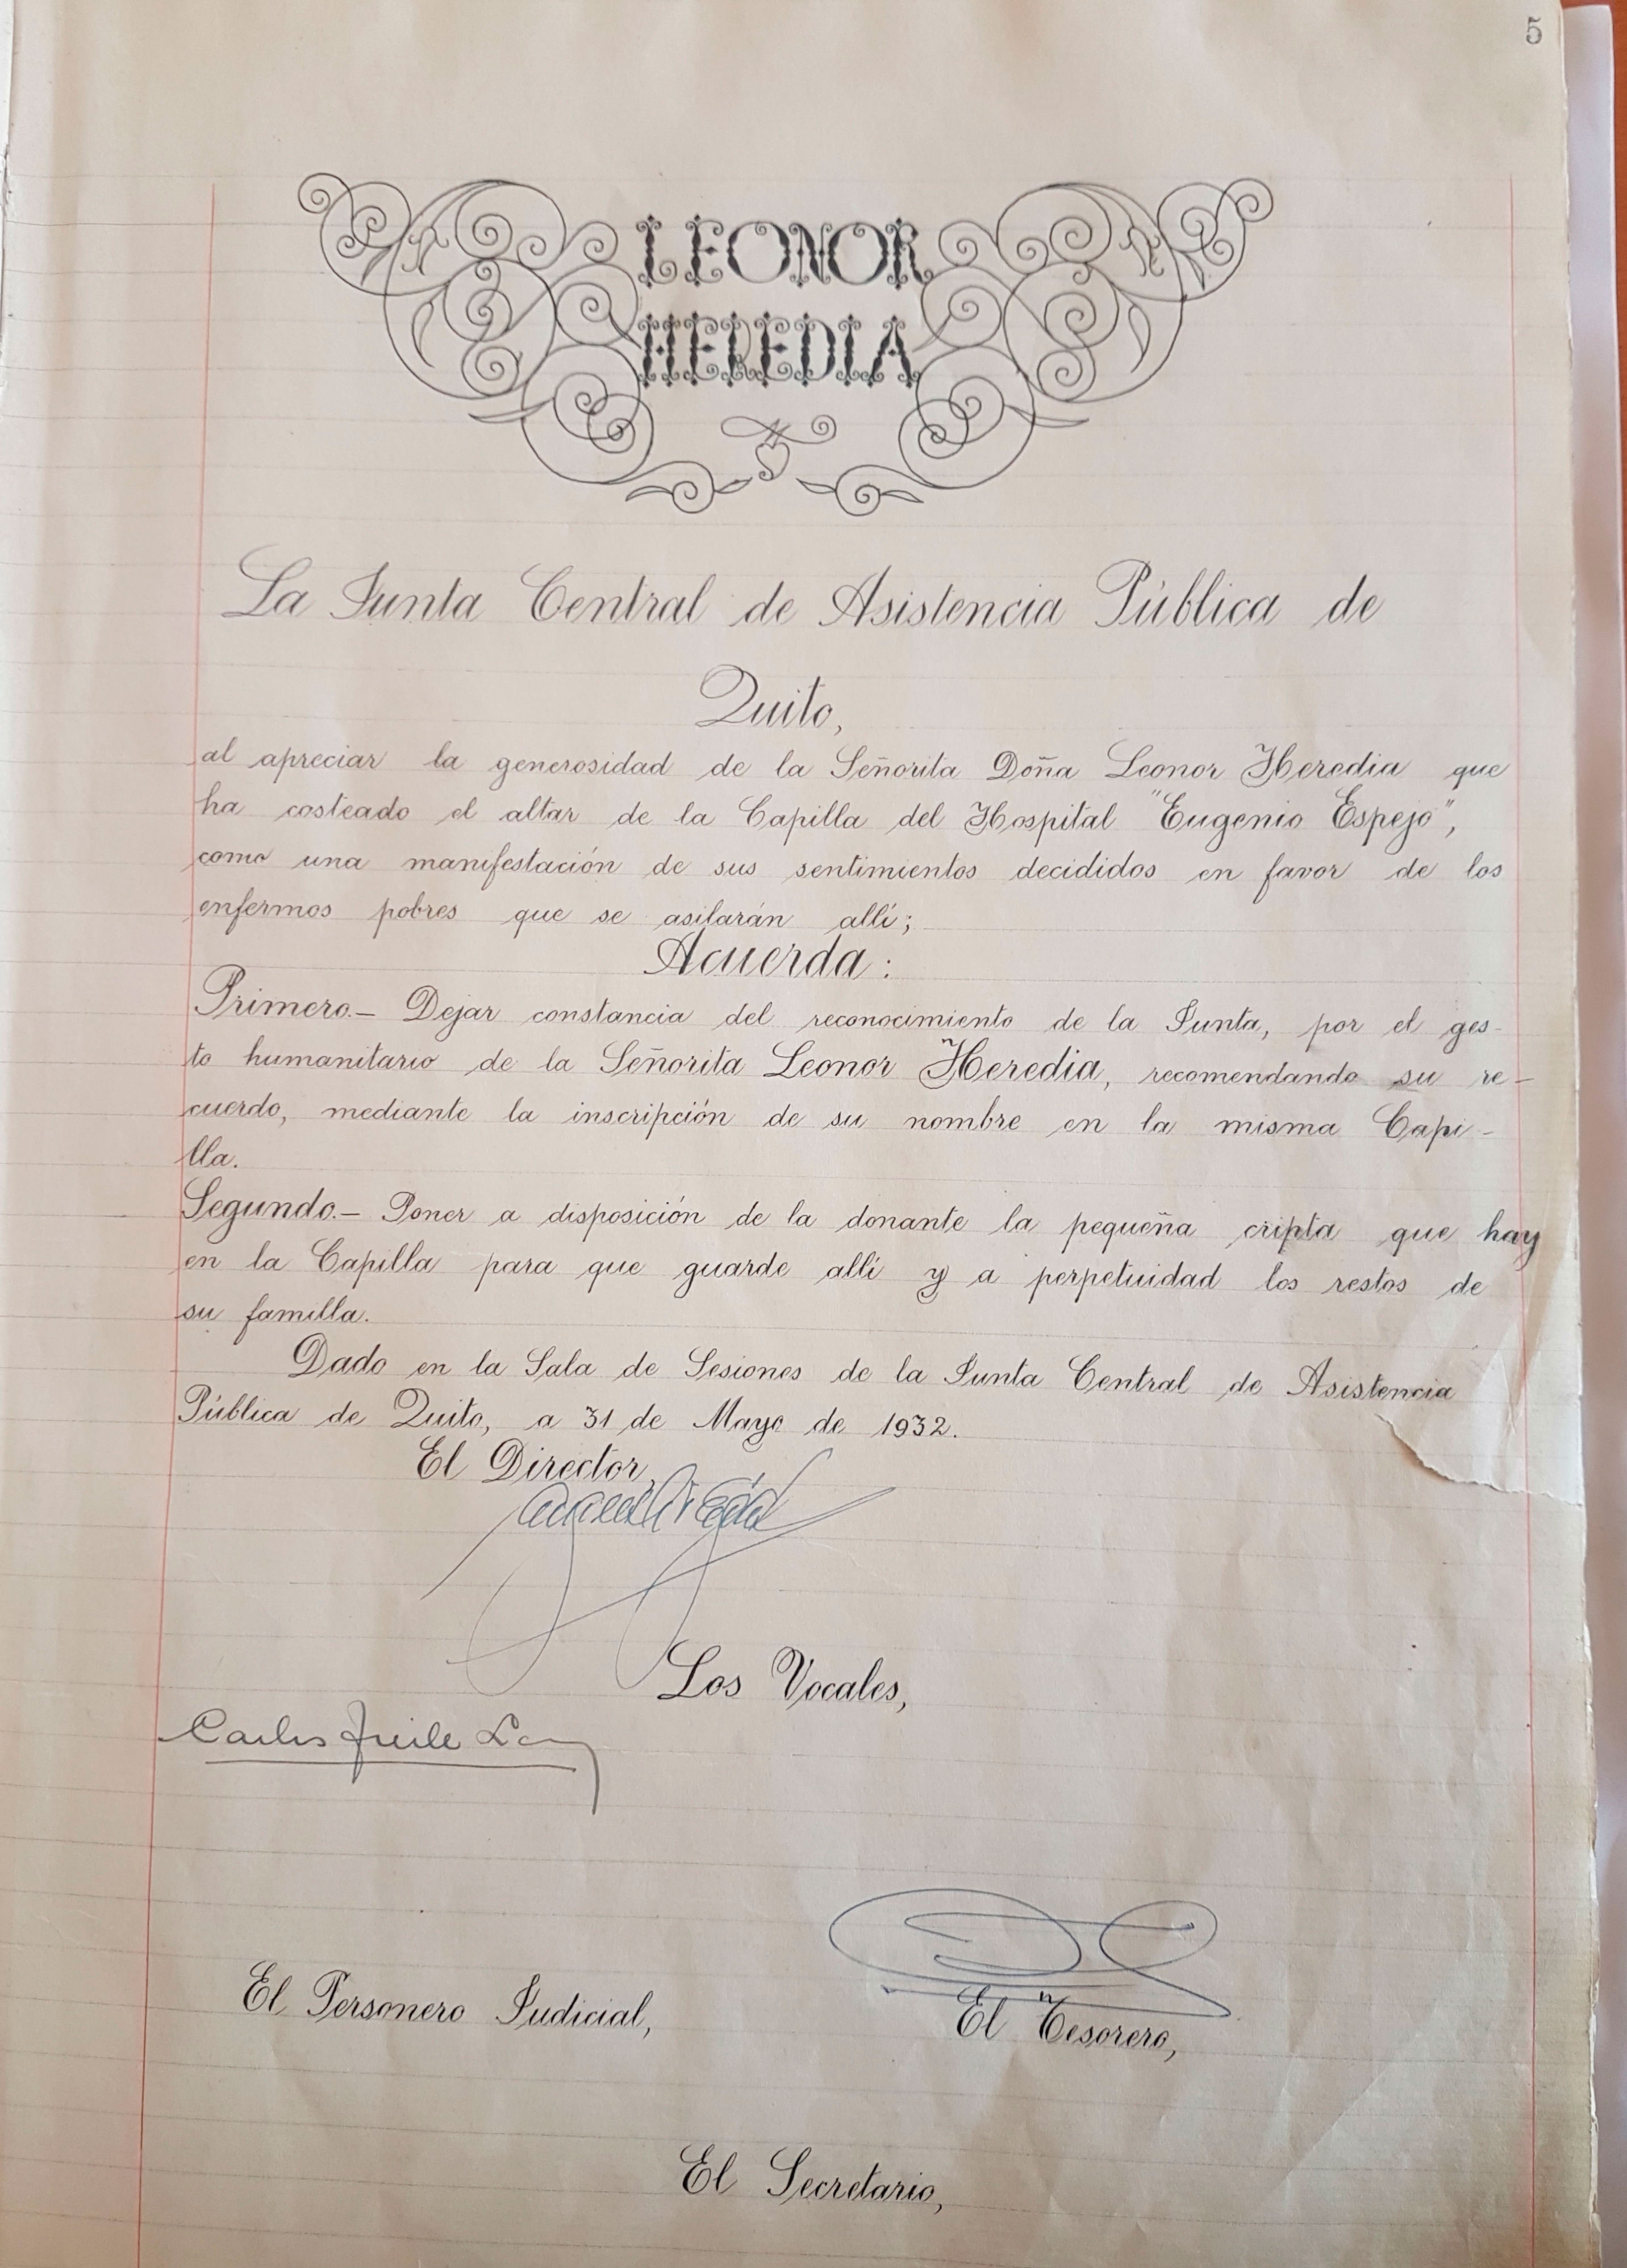 5
LEONOR
HEREDIA
La Junta Central de Asistencia Pública de
Quito,
al apreciar la generosidad de la Señorita Doña Leonor Heredia que
ha costeado el altar de la Capilla del Hospital "Eugenio Espejo",
como una manifestación de sus sentimientos decididos en favor de los
enfermos pobres que se asilarán allí;
Acuerda:
Primero.- Dejar constancia del reconocimiento de la Junta, por el ges-
to humanitario de la Señorita Leonor Heredia, recomendando su re-
cuerdo, mediante la inscripción de su nombre en la misma Capi-
lla.
Segundo.- Poner a disposición de la donante la pequeña cripta que hay
en la Capilla para que guarde allí y a perpetuidad los restos de
su familia.
Dado en la Sala de Sesiones de la Junta Central de Asistencia
Pública de Quito, a 31 de Mayo de 1932.
El Director,
Los Vocales,
Carlos
El Personero Judicial,
El Tesorero,
El Secretario,